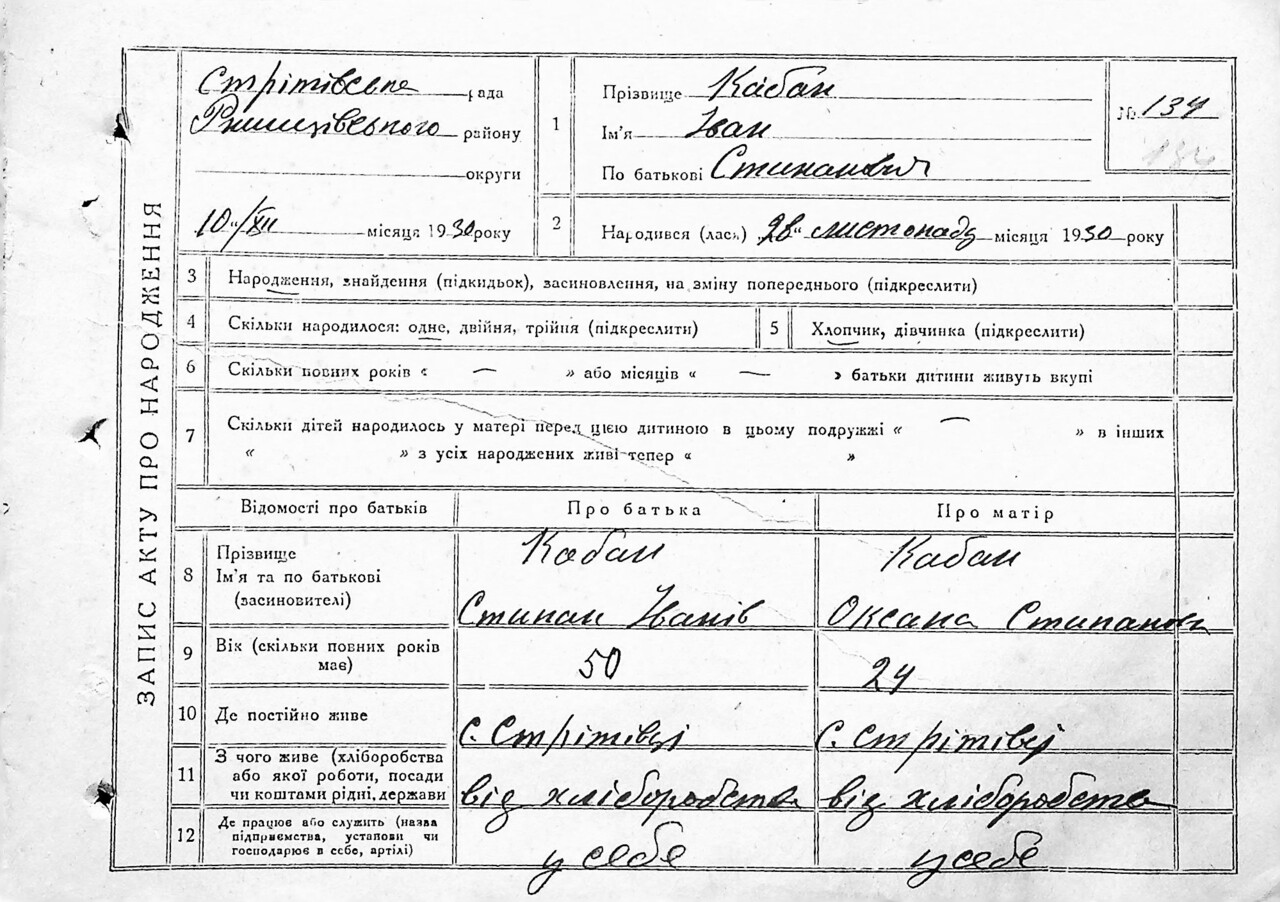 ЗАПИС АКТУ ПРО НАРОДЖЕННЯ
Стрітівське рада
Ржищівського району
округи
10/XII місяця 1930 року
1
Прізвище Кабан
Ім'я Іван
По батькові Стипанович
№ 134
134
2
Народився (лась) 28" листопаду місяця 1930 року
3 Народження, знайдення (підкидьок), засиновлення, на зміну попереднього (підкреслити)
4 Скільки народилося: одне, двійня, трійня (підкреслити) 5 Хлопчик, дівчинка (підкреслити)
6 Скільки повних років « — » або місяців « — » батьки дитини живуть вкупі
7 Скільки дітей народилось у матері перед цією дитиною в цьому подружжі « — » в інших
« » з усіх народжених живі тепер « »
Відомості про батьків Про батька Про матір
8 Прізвище Кабан Кабан
Ім'я та по батькові
(засиновителі) Стипан Іванів Оксана Стипанова
9 Вік (скільки повних років
має) 50 24
10 Де постійно живе с. Стрітівці с. Стрітівці
11 З чого живе (хліборобства
або якої роботи, посади
чи коштами рідні, держави від хліборобства від хліборобства
12 Де працює або служить (назва
підприємства, установи чи
господарює в себе, артілі) у себе у себе